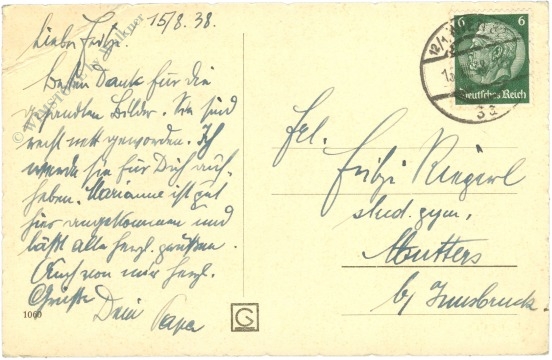 15/8. 38.
Liebe Fritzi.
Besten Dank für die
gesandten Bilder. Sie sind
recht nett geworden. Ich
werde sie für Dich auf-
heben. Marianne ist gut
hier angekommen und
läßt alle herzl. grüßen.
Auch von mir herzl.
Grüße
Dein
Papa
1060
G
6 6
Deutsches Reich
12/1.
Frl.
Fritzi Riegerl
stud. gym.
Mutters
b/ Innsbruck.